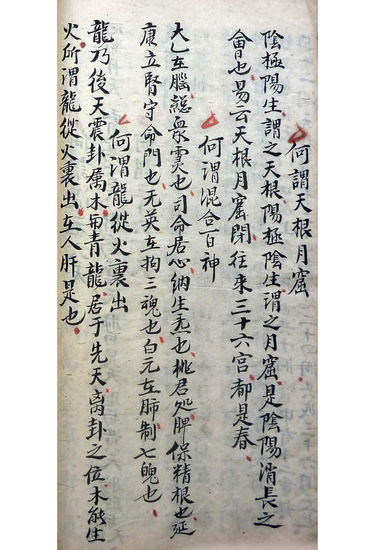 何謂天根月窟
陰極陽生謂之天根陽極陰生謂之月窟是陰陽消長之
會也易云天根月窟閉往來三十六宮都是春
何謂混合百神
太乙在腦總衆靈也司命居心納生炁也桃君処脾保精根也延
康立腎守命門也无英在拘三魂也白元在肺制七魄也
何謂龍從火裏出
龍乃後天震卦屬木為青龍居于先天离卦之位木能生
火所謂龍從火裏出在人肝是也